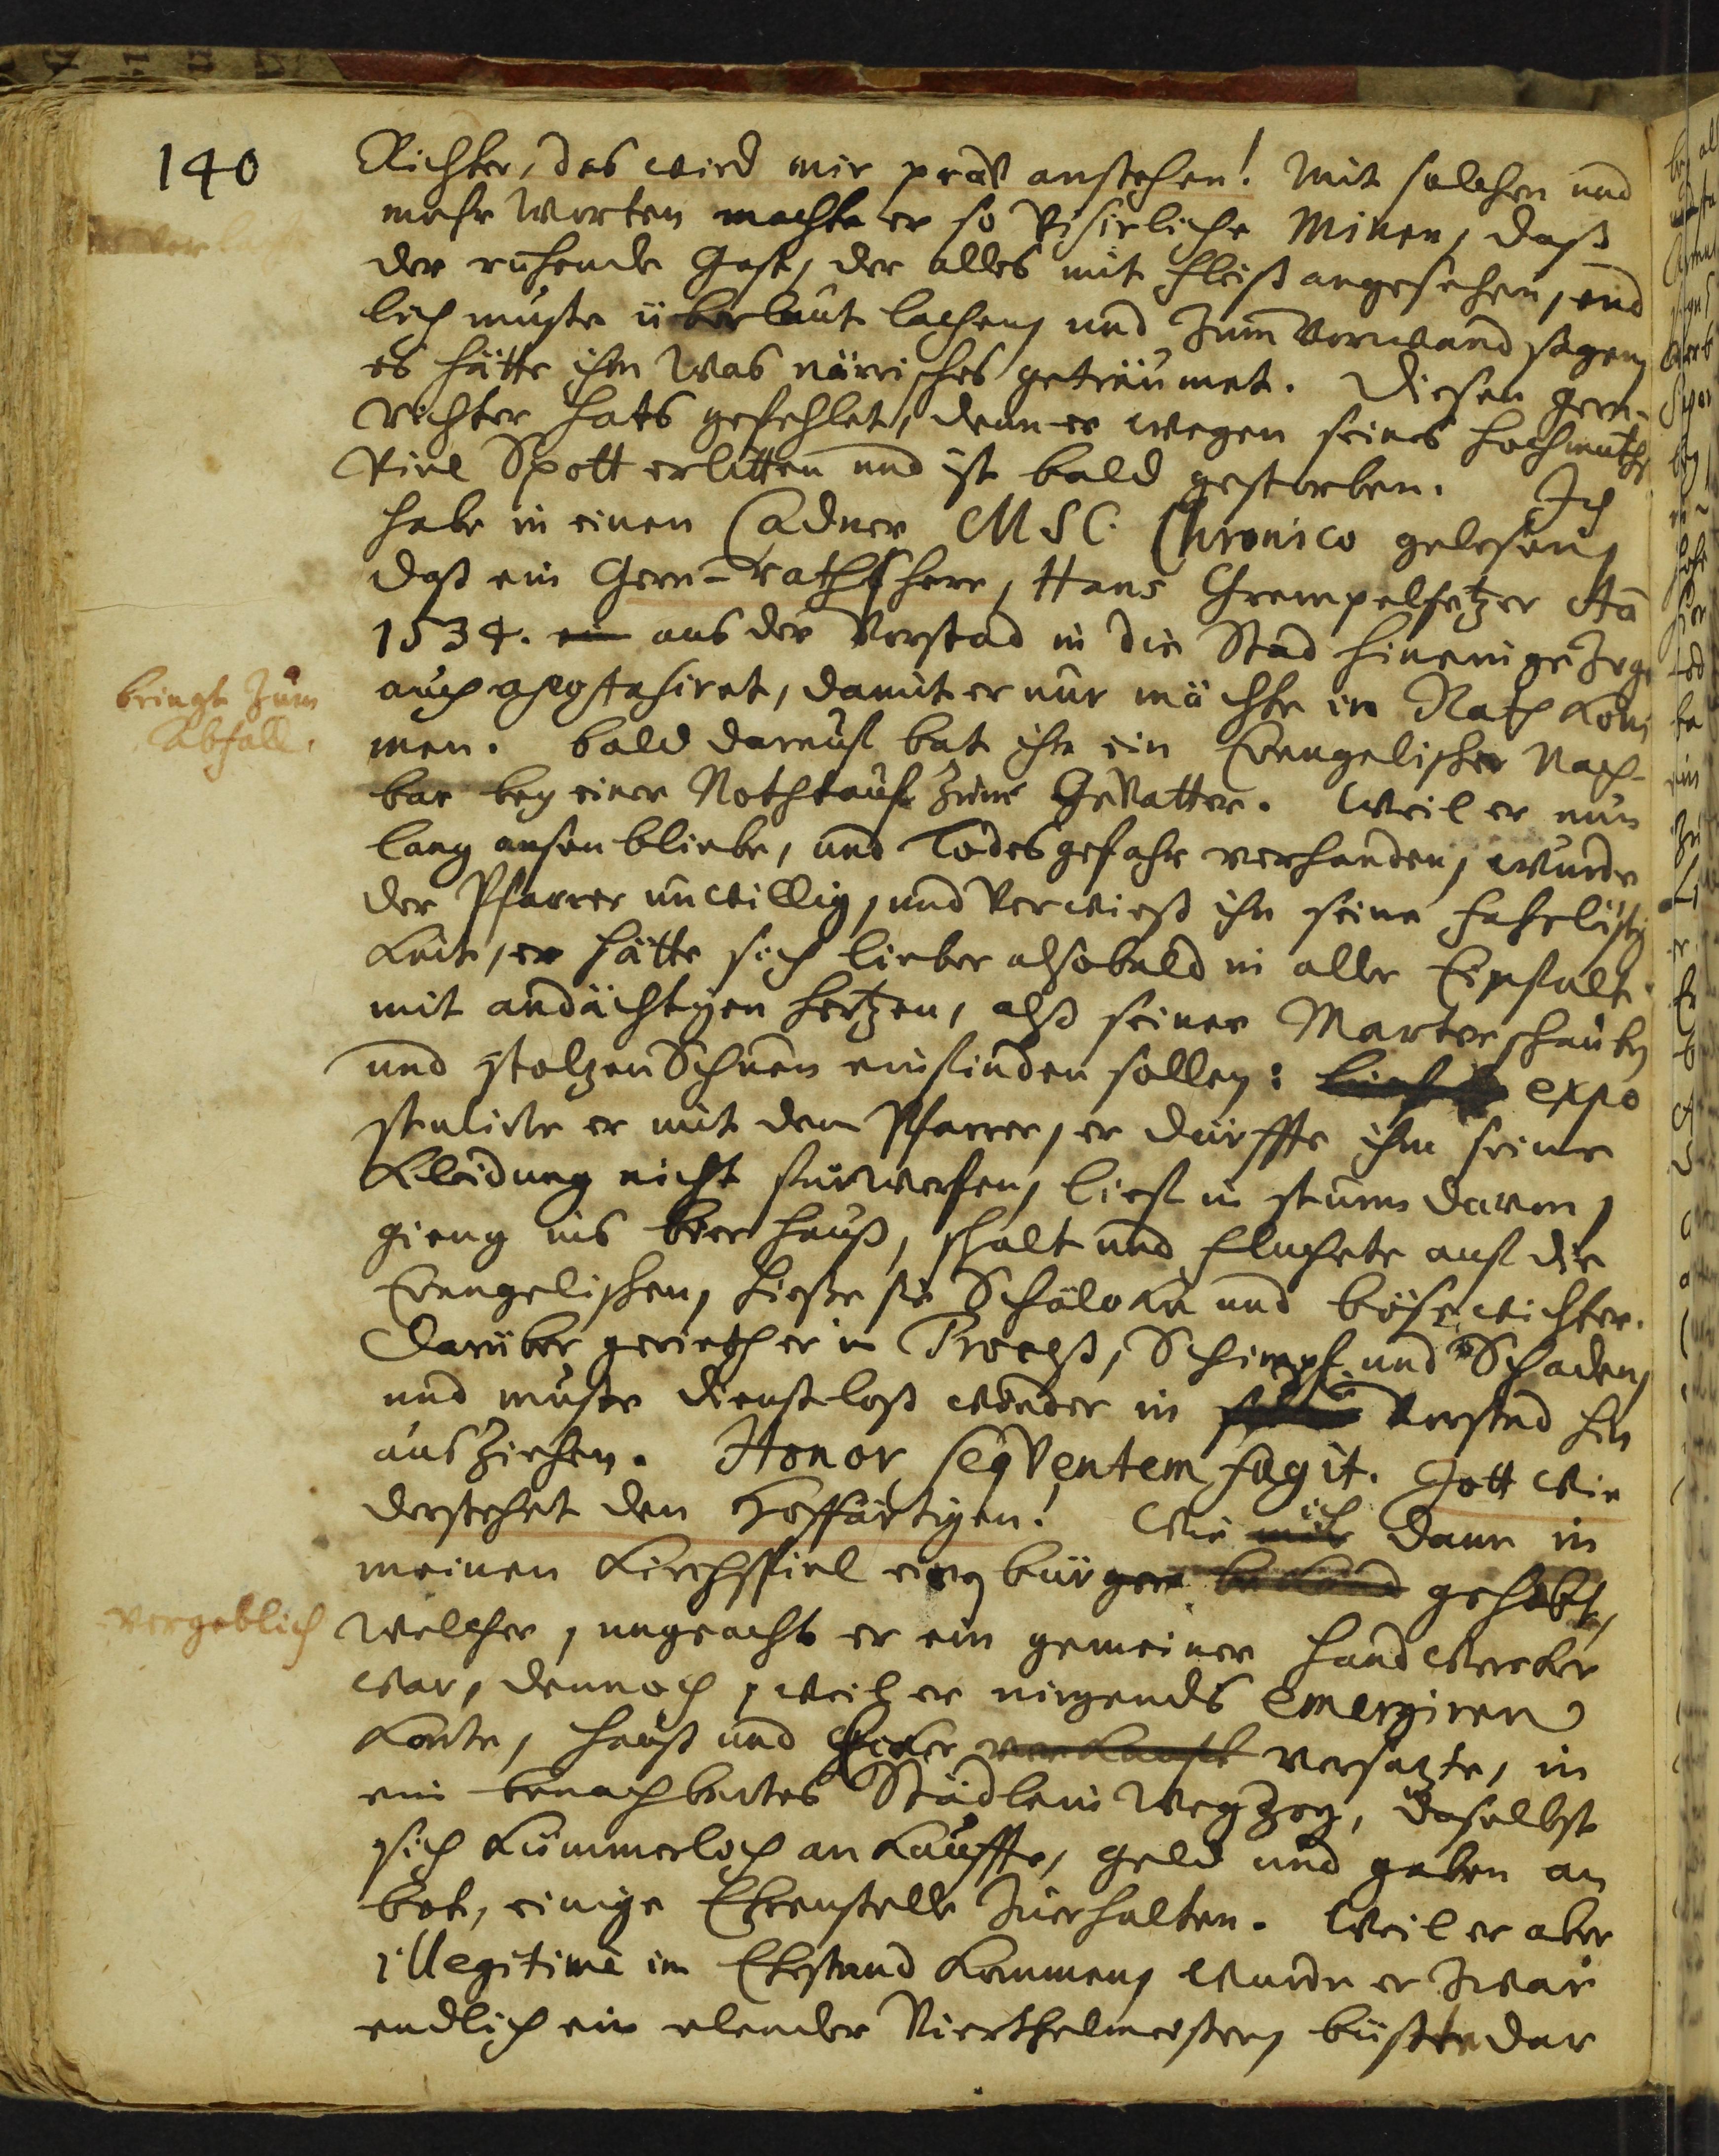 140
Richter, das wird mir präv anstehen! Mit solchen und
mehr Worten machte er so Visirliche Minen, daß
der ruhende Gast, der alles mit fleiß angesehen, end
lich muste überlaut lachen, und zum Vorwand sagen,
es hätte ihm was närrisches geträumet. Diesen gern-
richter hats gefehlet, denn er wegen seines hochmuths
Viel Spott erlitten und ist bald gestorben. Ich
habe in einen Cadner MSC. Chronico gelesen,
daß ein Gern-rathsherr, Hans Grempelsetzer Aõ
1534. ein aus der Vorstad in die Stad hinein gezoge
bringt zum
Abfall.
auch apostasiret, damit er nur möchte in Rath kom
men. bald darauf bat ihn ein Evangelischer Nach-
bar bey einer Nothtauf zum Gevatter. Weil er nun
lang ausen bliebe, und Todesgefahr verhanden, wurde
der Pfarrer unwillig, und Verwieß ihn seine fahrläßig
keit, er hätte sich lieber alsobald in aller Einfalt
mit andächtigen hertzen, alß seiner Marterschauben
und stolzen Schuen einfinden sollen: expo
stulirte er mit dem Pfarrer, er dürffte ihm seine
Kleidung nicht fürwerfen, lief in sturm davon,
gieng ins bier hauß, schalt und fluchete auf die
Evangelischen, hieße sie Schälcke und bösewichter.
Darüber gerieth er in Proceß, Schimpf und Schaden,
und muste dienstloß wieder in Vorstad hin
ausziehen. Honor seqventem fugit. Gott wie
derstehet den Hoffärtigen! Wie ich dann in
meinen Kirchspiel einen bürger bekand gehabt,
vergeblich
welcher, ungeacht er ein gemeiner handwercker
war, dennoch, weil er nirgends emergiren
konte, hauß und verkauft versatzte, in
ein benachbartes Städlein wegzog, daselbst
sich kümmerlich ankauffte, geld und gaben an
bot, einige Ehrenstelle zuerhalten. Weil er aber
illegitimè im Ehestand kommen, wurde er zwar
endlich ein elender Viertelmeister, büste dar